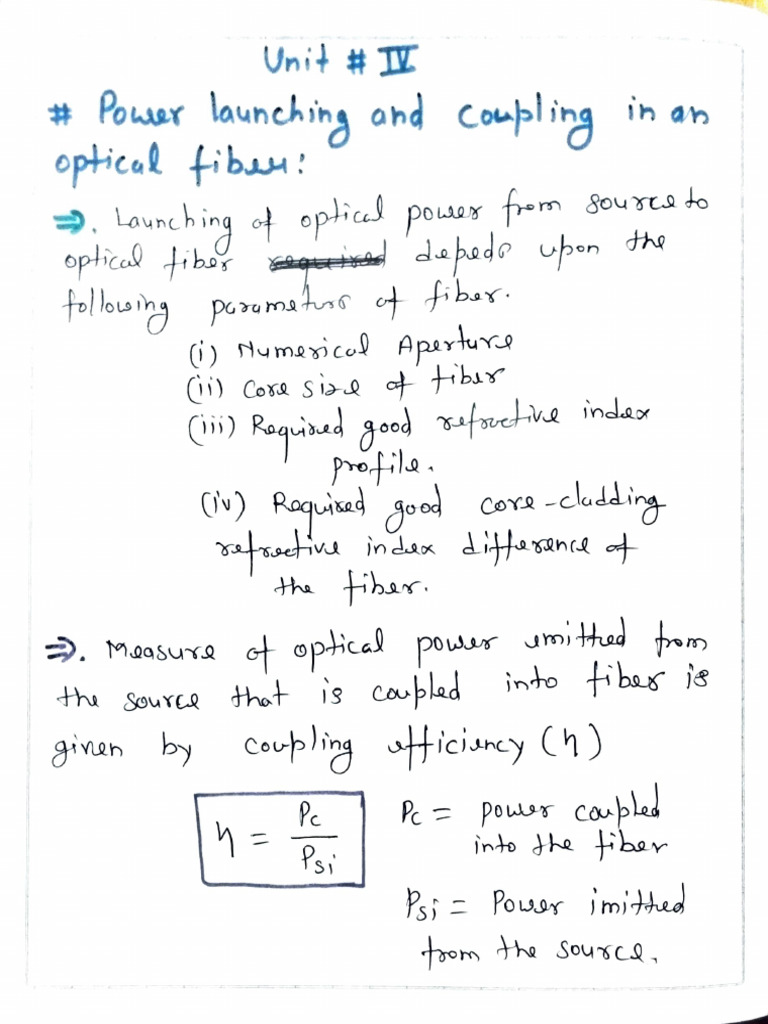 Unit # IV
# Power launching and coupling in an
optical fiber:
⇒. Launching of optical power from source to
optical fiber depeds upon the
following parameters of fiber.
(i) Numerical Aperture
(ii) Core size of fiber
(iii) Required good refractive index
profile.
(iv) Required good core-cladding
refractive index difference of
the fiber.
⇒. Measure of optical power emitted from
the source that is coupled into fiber is
given by coupling efficiency (η)
η = Pc / Psi
Pc = power coupled
into the fiber
Psi = Power imitted
from the source.